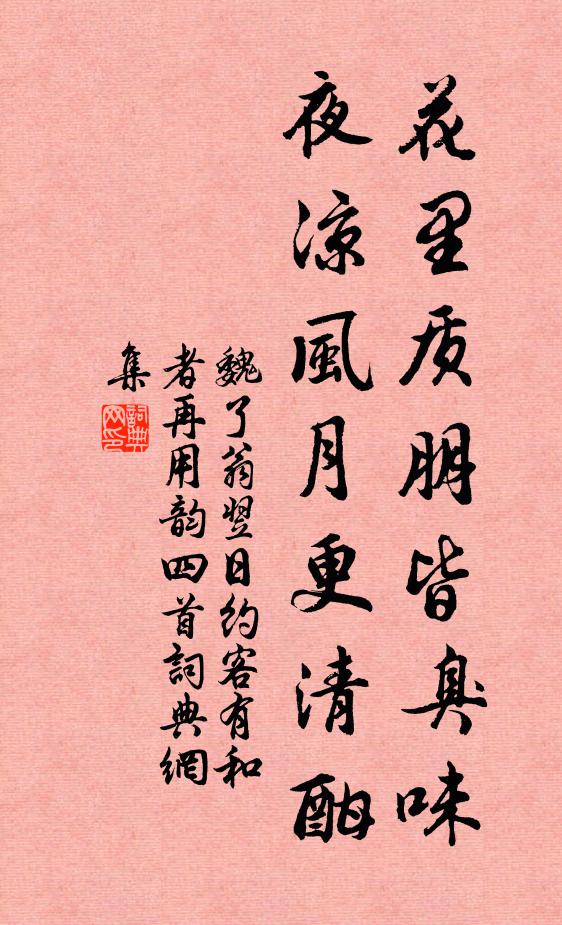 花里质朋皆臭味
夜凉風月更清酣
魏了翁翌日约客有和
者再用韵四首詞典網
集
詞典
网印